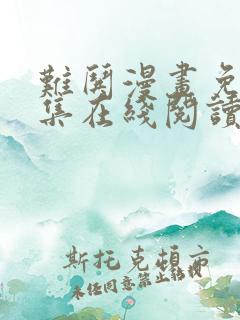 難鬩漫畫免
集在綫閱讀
斯托克頓市
未经同意禁止转载